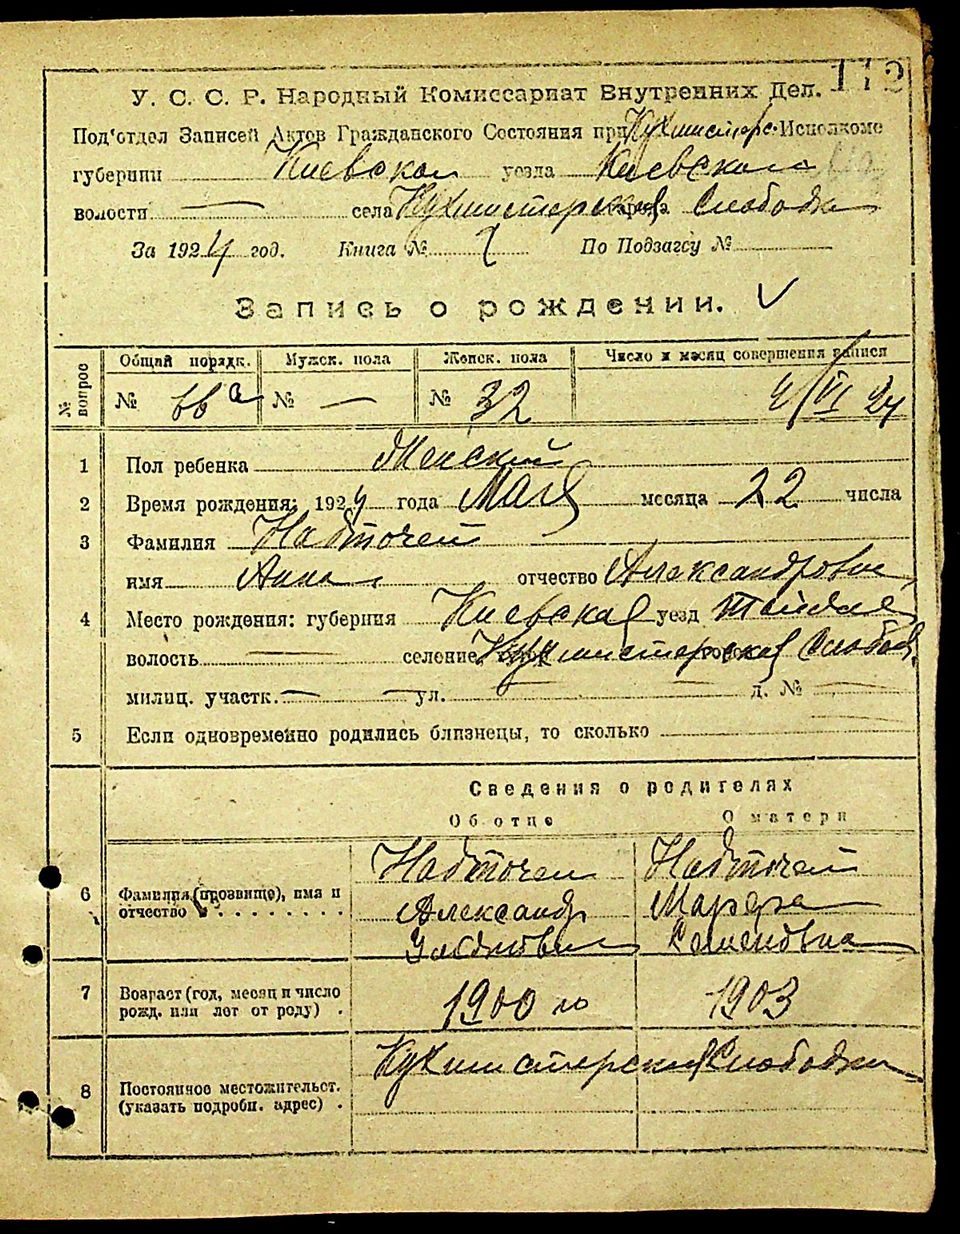 112
У. С. С. Р. Народный Комиссариат Внутренних Дел.
Под'отдел Записей Актов Гражданского Состояния при Кухмистерс. Исполкоме
губернии Киевской уезда Киевского
волости — села Кухмистерская города Слободка
За 1924 год. Книга № 1 По Подзагсу №
Запись о рождении.
№ вопрос
Общий порядк. Мужск. пола Женск. пола Число и месяц совершения записи
№ 66а № — № 32 4/VI 24
1 Пол ребенка Женский
2 Время рождения: 1924 года Мая месяца 22 числа
3 Фамилия Надточей
имя Анна отчество Александровна
4 Место рождения: губерния Киевская уезд
волость — селение Кухмистерская Слобод.
милиц. участк. — ул. — д. № —
5 Если одновременно родились близнецы, то сколько
Сведения о родителях
Об отце О матери
6 Фамилия (прозвище), имя и отчество
Надточей Надточей
Александр
Семеновна
7 Возраст (год, месяц и число рожд. или лет от роду)
1900 го 1903
8 Постоянное местожительст. (указать подробн. адрес)
Кухмистерская Слободка